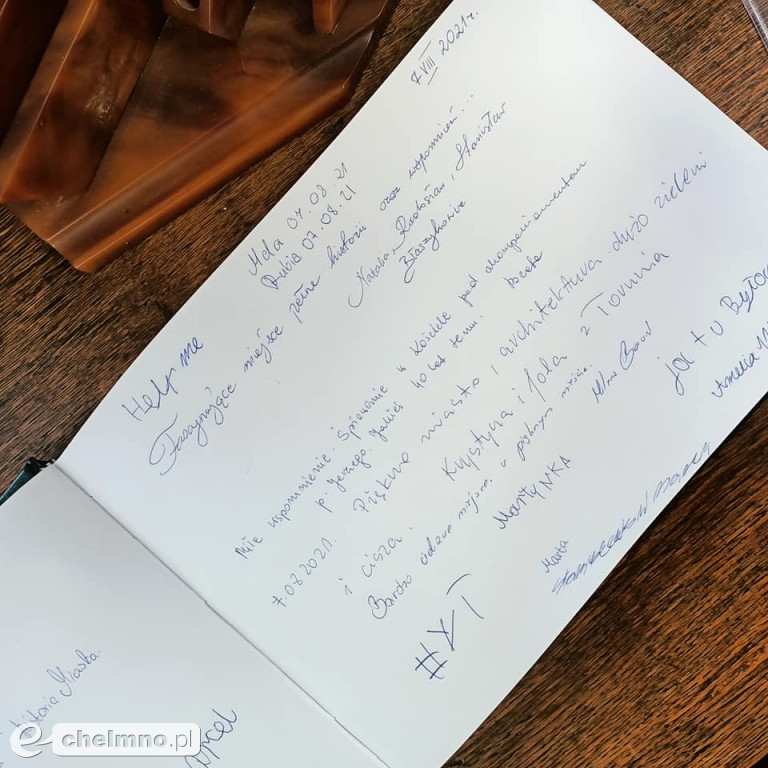 7 VIII 2021r.
Help me
Ada 07.08.21
Rubia 07.08.21
Fascynujące miejsce pełne historii oraz wspomnień...
Natalia, Radosław i Stanisław
Miłe wspomnienie. Śpiewanie w kościele pod akompaniamentem
p. Jerzego jakieś 40 lat temu. Beata
7.08.2021. Piękne miasto i architektura. dużo zieleni
i cisza. Krystyna i Jola z Torunia
Bardzo ciekawe miejsce w pięknym mieście.
MARTYNKA
ja t u Był
Amelia
#XT
Marta
Historia Miasta
e-chelmno.pl